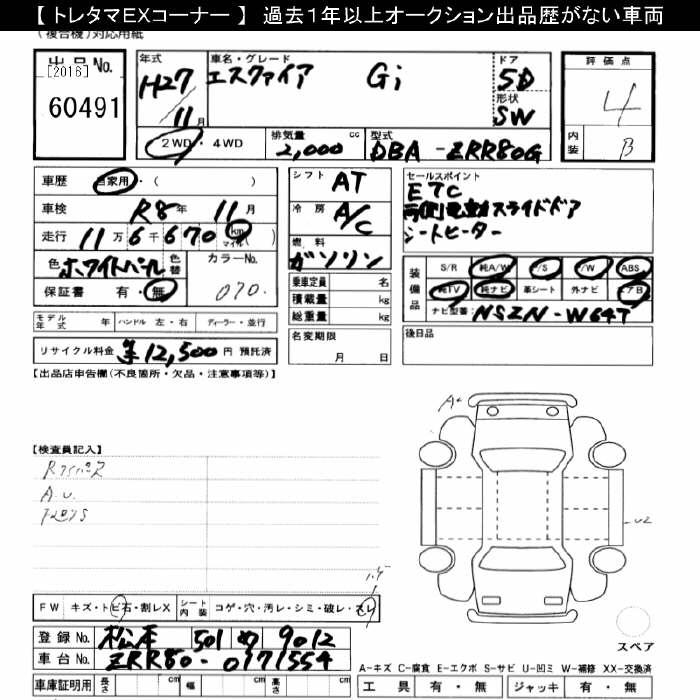 【 トレタマEXコーナー 】 過去1年以上オークション出品歴がない車両
(複合機)対応用紙
出品No.
[2016]
60491
年式
H27
11月
車名・グレード
エスクァイア Gi
ドア
5D
形状
SW
2WD・4WD
排気量 cc
2,000
型式
DBA - ZRR80G
評価点
4
内装
B
車歴 自家用・( )
車検 R8年 11月
走行 11万6千670 km マイル( )
色 ホワイトパール 色替 カラーNo. 070.
保証書 有・無
シフト AT
冷房 A/C
燃料 ガソリン
乗車定員 名
積載量 kg
総重量 kg
セールスポイント
ETC
両側電動スライドドア
シートヒーター
装備品
S/R 純A/W P/S P/W ABS
純TV 純ナビ 革シート 外ナビ エアB
ナビ型番: NSZN-W64T
モデル年式 年 ハンドル 左・右 ディーラー・並行
リサイクル料金 ¥12,500円 預託済
名変期限
月 日
後日品
【出品店申告欄(不良箇所・欠品・注意事項等)】
【検査員記入】
Rワイパーズ
A.U.
A
U2
FW キズ・トビ石・割レX シート内装 コゲ・穴・汚レ・シミ・破レ・スレ
登録No. 松本 501 め 9012
車台No. ZRR80-0171554
車庫証明用 長さ cm 幅 cm 高さ cm
スペア
A-キズ C-腐食 E-エクボ S-サビ U-凹ミ W-補修 XX-交換済
工具 有・無 ジャッキ 有・無